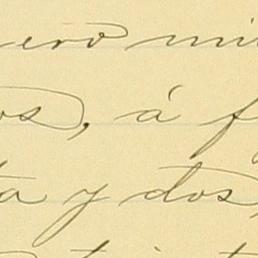 ero mi
os, á f
ta y dos,